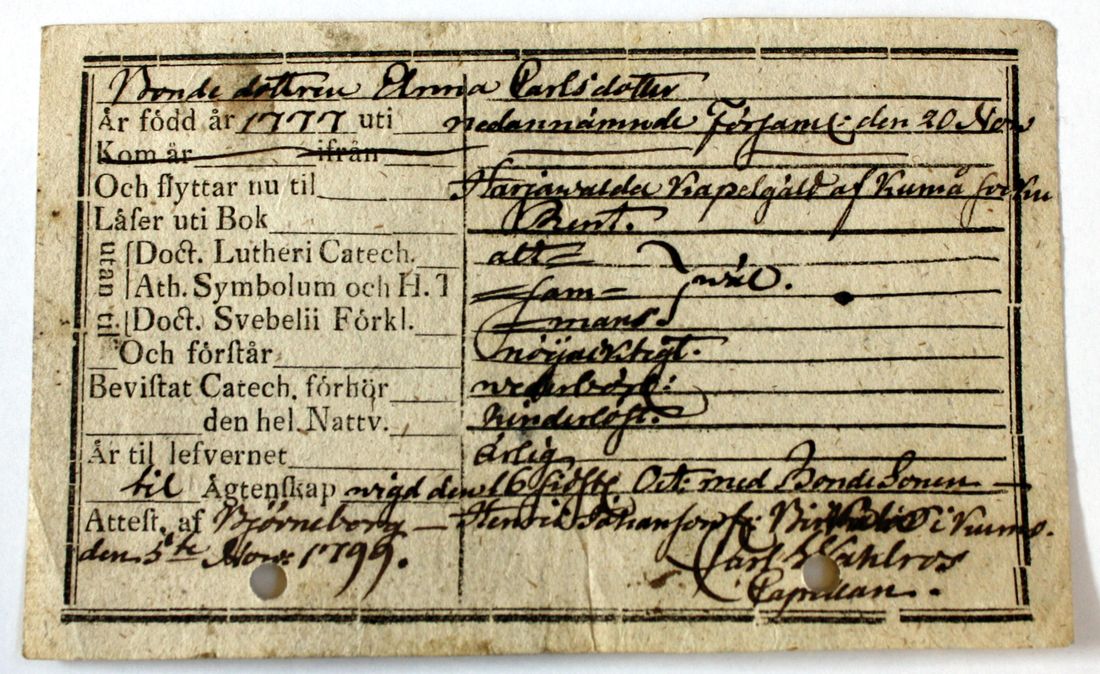 Bonde dottren Anna Carlsdotter
År född år 1777 uti nedannämnde Församl: den 20 Nov
Kom år ifrån
Och flyttar nu til Harjawalda Kapelgäld af Kumå Sockn
Låser uti Bok Rent.
utan til
Doct. Lutheri Catech. alt
Ath. Symbolum och H. T sam wäl.
Doct. Svebelii Fórkl. mans
Och fórstår nöijacktigt.
Bevistat Catech. fórhór wederbörl:
den hel. Nattv. hinderlöst.
År til lefvernet ärlig
til Ägtenskap wigd den 16 sidstl Oct: med BondeSonen
Attest. af Björneborg Henric Johansson fr: i Kumo.
den 5te Nov: 1799. Carl Wahlros
Capellan.